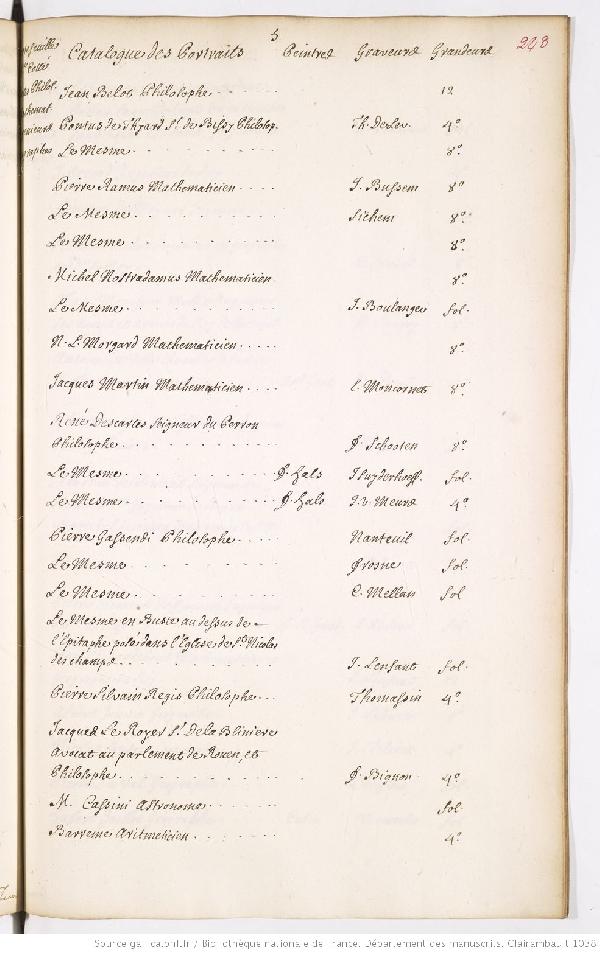 5
208
Catalogue des Portraits Peintres Graveurs Grandeurs
Jean Belot Philosophe 12
Pontus de Thyard Sr. de Bissy Philosop. Th. De Leu 4o.
Le Mesme 8o.
Pierre Ramus Mathematicien J. Bussem 8o
Le Mesme Sichem 8o.
Le Mesme 8o.
Michel Nostradamus Mathematicien 8o.
Le Mesme J. Boulanger fol.
N. L. Morgard Mathematicien 8o.
Jacques Martin Mathematicien l. Moncornet 8o
René Descartes Seigneur du Perron
Philosophe F. Schoten 8o
Le Mesme F. Hals J Suyderhoeff fol.
Le Mesme F. Hals J. v. Meurs 4o
Pierre Gassendi Philosophe Nanteuil fol.
Le Mesme Frosne fol.
Le Mesme C. Mellan fol
Le Mesme en Buste au dessus de
l'Epitaphe posé dans l'Eglise de St. Nicolas
des champs J. Lenfant fol.
Pierre Silvain Regis Philosophe Thomassin 4o.
Jacques Le Royer Sr. De la Bliniere
avocat au parlement de Rouen, et
Philosophe F. Bignon 4o
M. Cassini Astronome fol.
Barreme Aritmeticien 4o
Source gallica.bnf.fr / Bibliothèque nationale de France. Département des manuscrits. Clairambault 1038